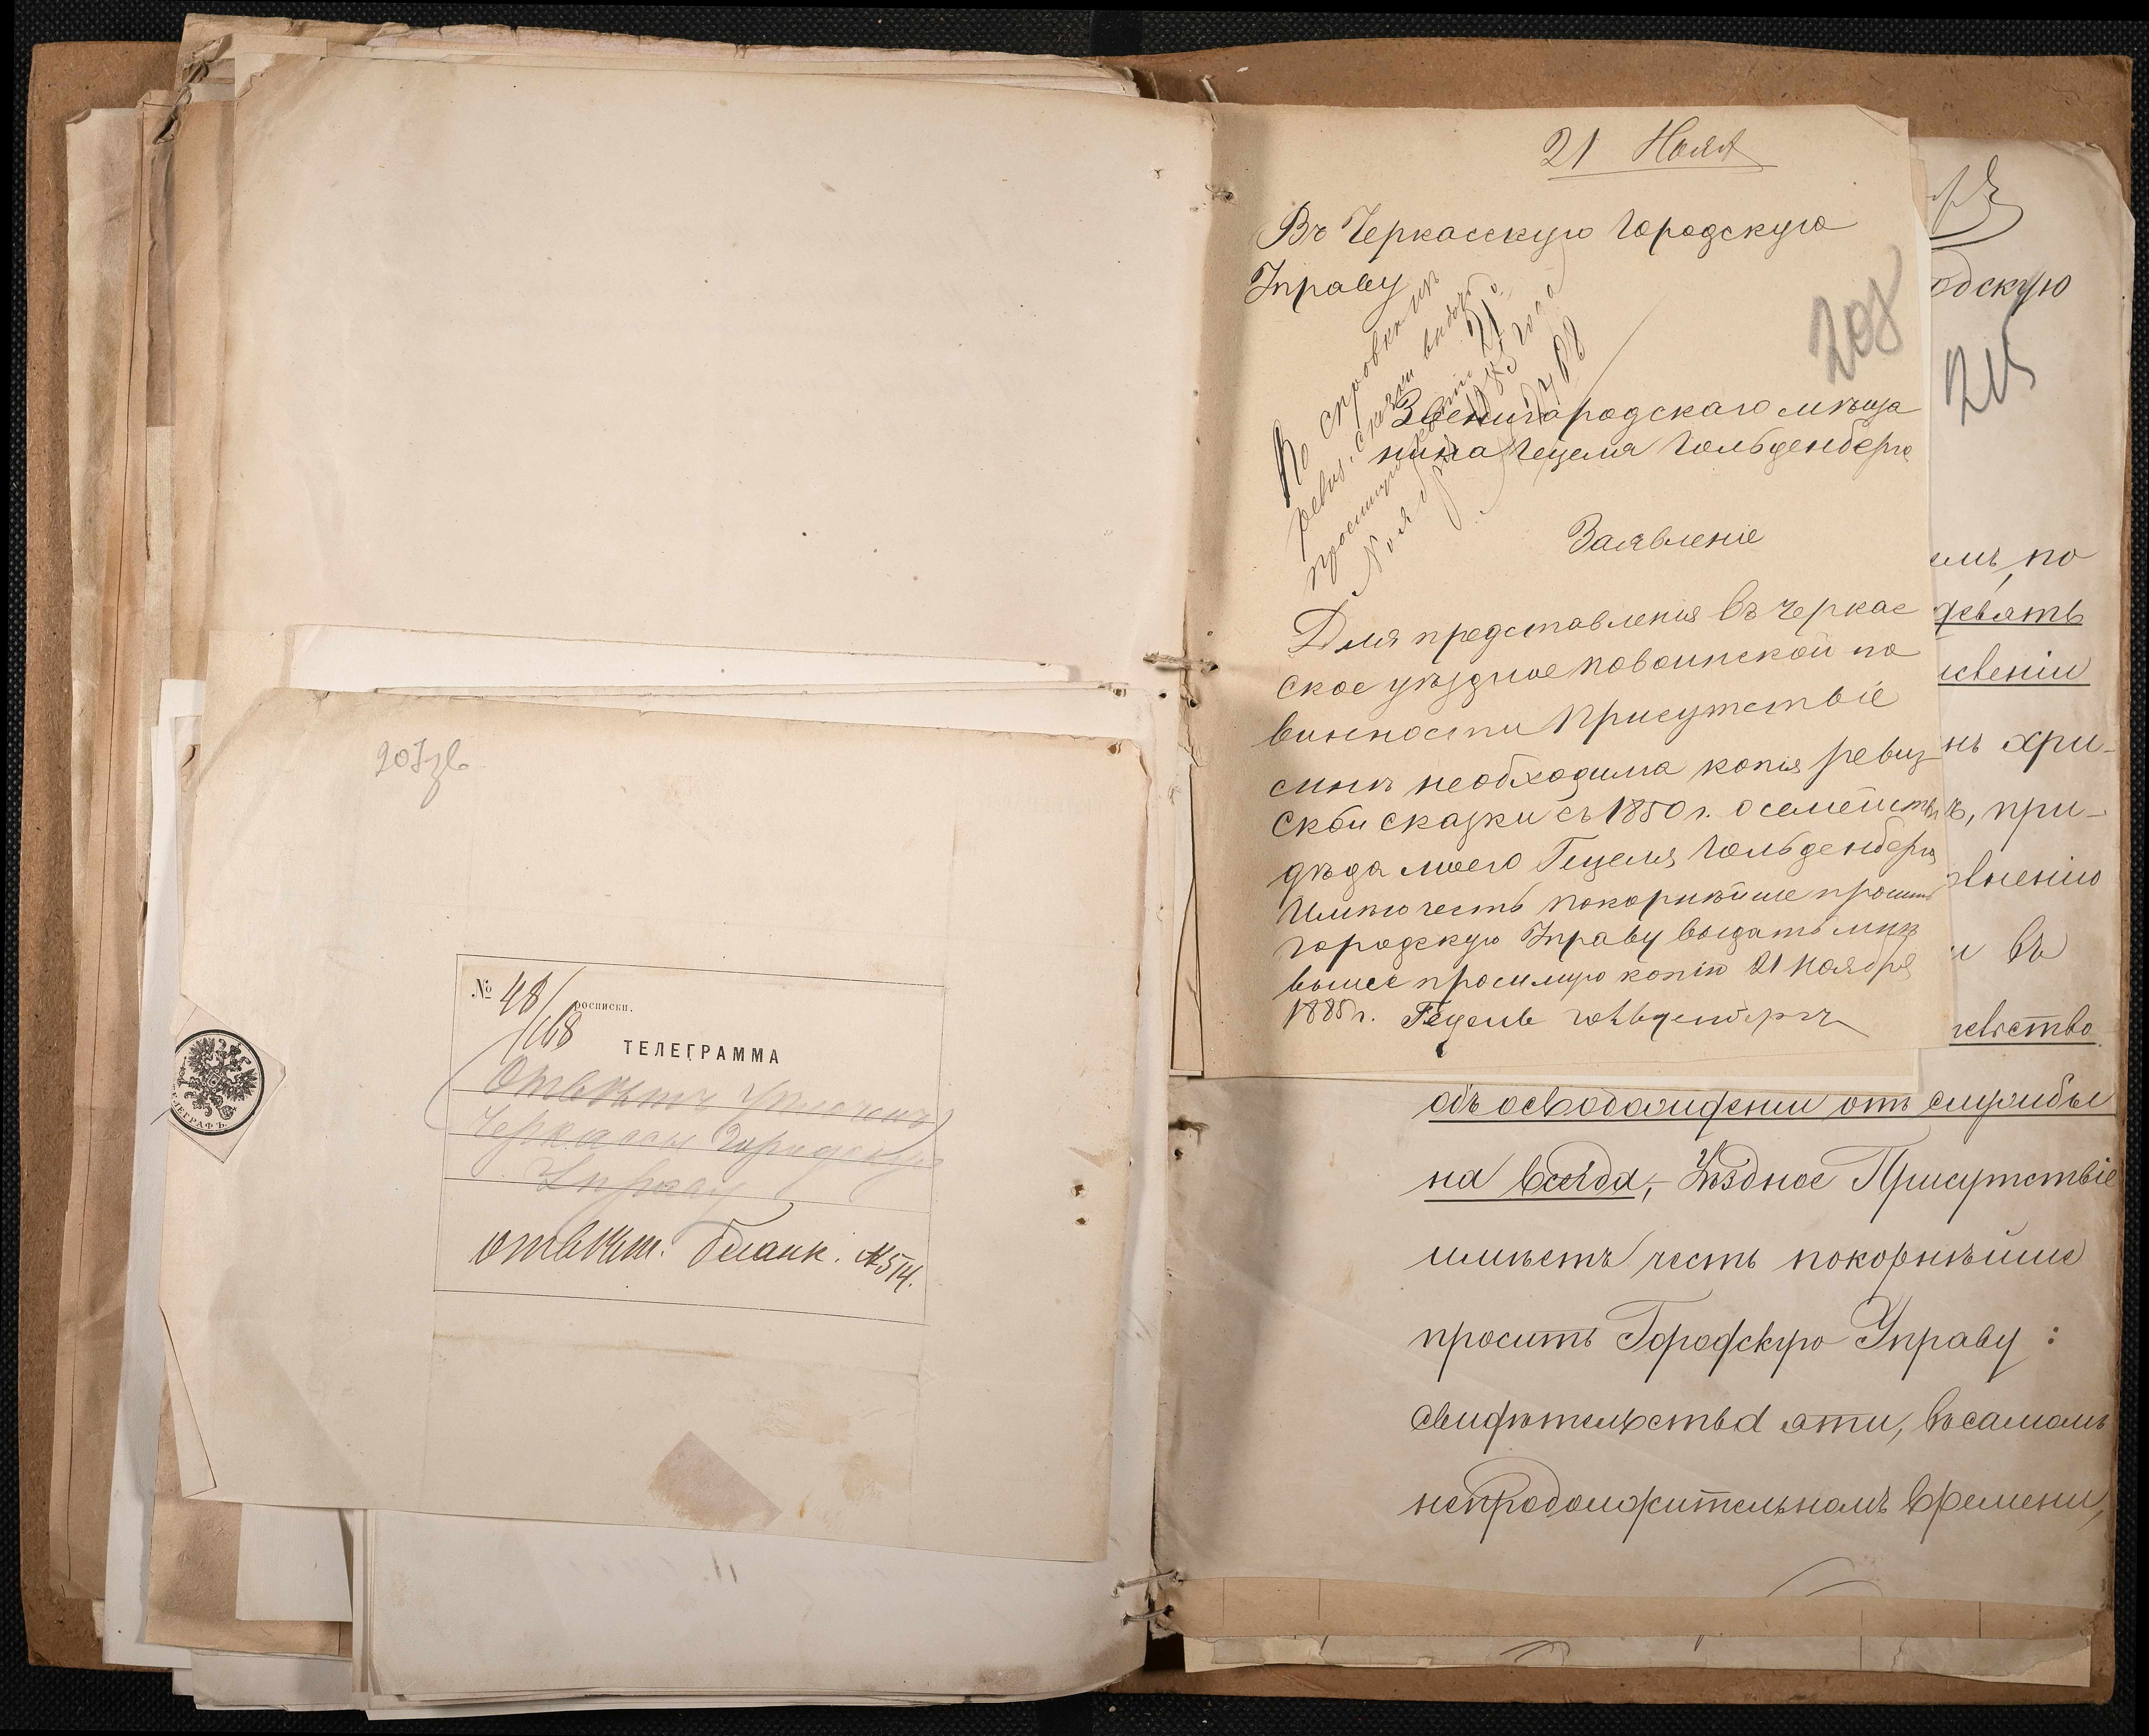 207 зв
№ 48/
росписки.
/168
ТЕЛЕГРАММА
Отвѣтъ уплоченъ
Черкассы Городскую
Управу
отвѣт. бланк. №514.
ТЕЛЕГРАФЪ
21 Нояб
Въ Черкасскую Городскую
Управу
208
По справки изъ
ревиз. сказки выдать
21
Ноября 1885 года
Звенигородскаго мѣща
нина Гецеля Гольденберга
Заявленіе
Для представленія въ Черкас
ское уѣздное повоинской по
винности Присутствіе
необходима копія ревиз
ской сказки съ 1850 г. о семействѣ
дѣда моего Гецеля Гольденберга
Имѣю честь покорнѣйше просить
городскую Управу выдать мнѣ
вышее просимую копію 21 Ноября
1885 г. Гецель Гольденбергъ
одскую
215
емъ, по
девять
хри-
ъ, при-
внению
въ
объ освобожденіи отъ службы
на всегда, - Уѣздное Присутствіе
имѣетъ честь покорнѣйше
просить Городскую Управу:
свидѣтельства эти, въ самомъ
непродолжительномъ времени,